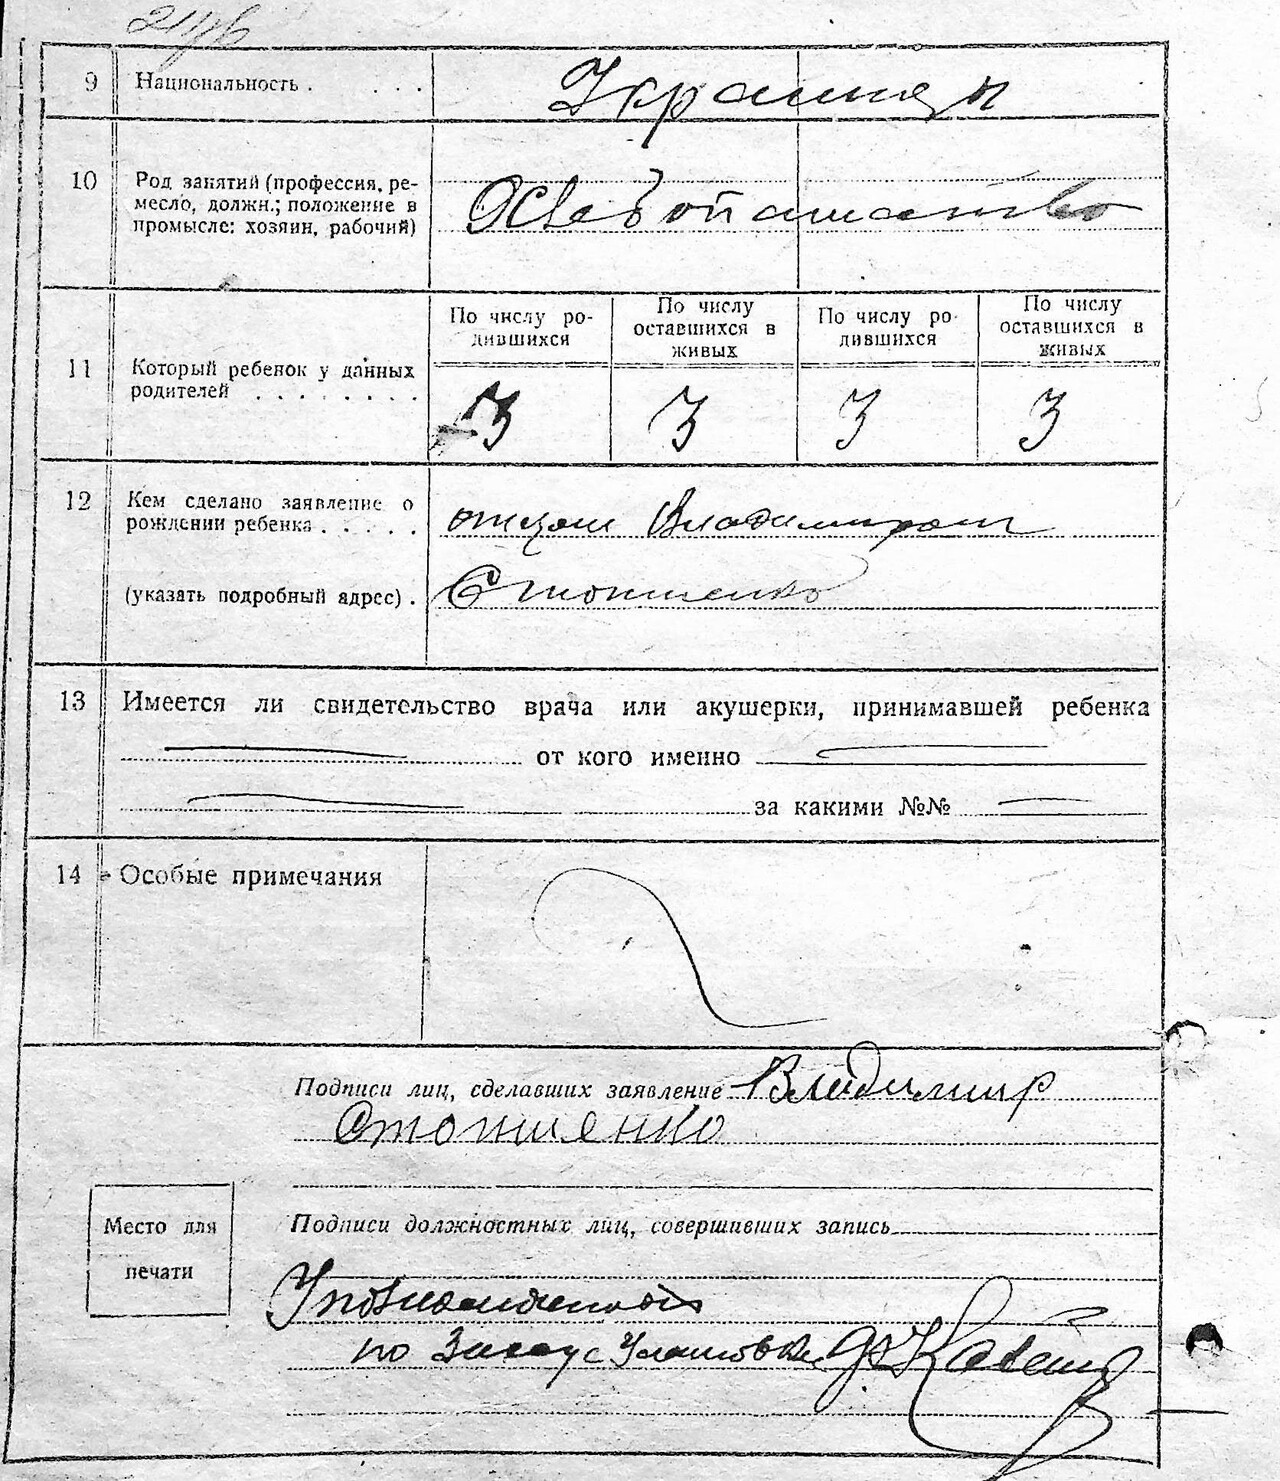 246
9 Национальность . . . . Украинцы
10 Род занятий (профессия, ре-
месло, должн.; положение в
промысле: хозяин, рабочий)
11 Который ребенок у данных
родителей . . . . . . . .
По числу ро-
дившихся
По числу
оставшихся в
живых
По числу ро-
дившихся
По числу
оставшихся в
живых
3 3 3 3
12 Кем сделано заявление о
рождении ребенка . . . . .
отцом Владимиром
(указать подробный адрес) .
13 Имеется ли свидетельство врача или акушерки, принимавшей ребенка
от кого именно
за какими №№
14 Особые примечания
Подписи лиц, сделавших заявление Владимир
Место для
печати
Подписи должностных лиц, совершивших запись
по Загсу с